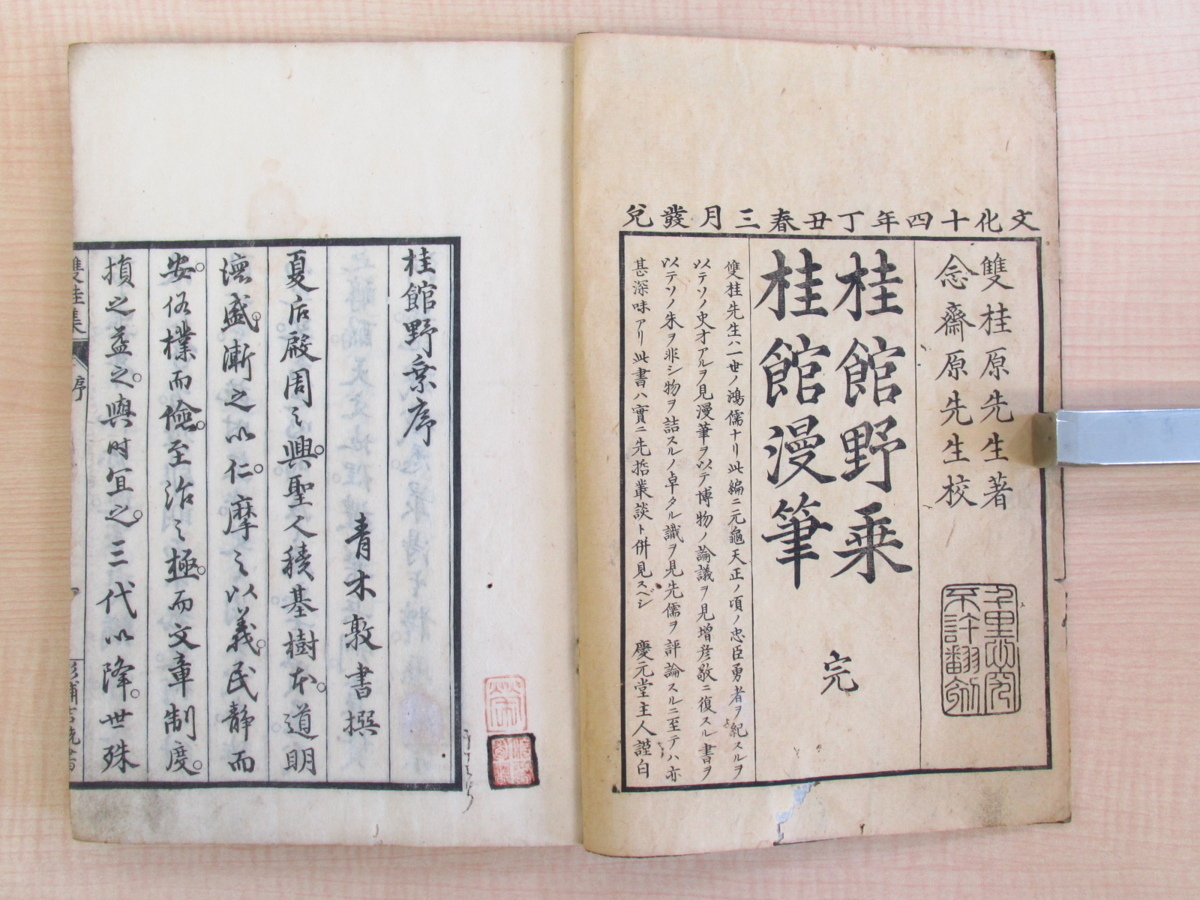 文化十四年丁丑春三月發兌
雙桂原先生著
念齋原先生校
千里必究
不許翻刻
桂館野乗
桂館漫筆
完
雙桂先生ハ一世ノ鴻儒ナリ此編ニ元龜天正ノ頃ノ忠臣勇者ヲ紀スルヲ
以テソノ史才アルヲ見漫筆ヲ以テ博物ノ論議ヲ見増彦敬ニ復スル書ヲ
以テソノ朱ヲ非シ物ヲ詰スルノ卓タル識ヲ見先儒ヲ評論スルニ至テハ亦
甚深味アリ此書ハ實ニ先哲叢談ト併見スベシ
慶元堂主人謹白
桂館野乗序
青木敦書撰
夏后殷周之興聖人積基樹本道明
澶盛漸之以仁摩之以義民静而
安俗樸而儉至治之極而文章制度
損之益之與時宜之三代以降世殊
雙桂集
序